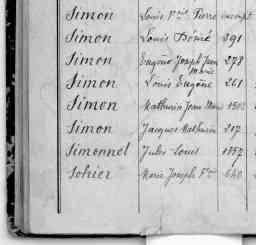 Simon Louis Fois Pierre exempt
Simon Louis Désiré 291
Simon Eugène Joseph Jean Marie 278
Simon Louis Eugène 261
Simon Mathurin Jean Marie
Simon Jacques Mathurin 217
Simonnel Jules Louis 1857
Sohier Marie Joseph Fs 640